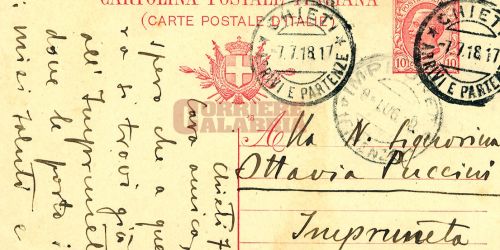 CARTOLINA POSTALE ITALIANA
(CARTE POSTALE D'ITALIE)
CHIETI
7.7.18.17
ARRIVI E PARTENZE
CHIETI
7.7.18.17
ARRIVI E PARTENZE
10
10
CORRIERE
CALABRIA
Alla N. Signorina
Ottavia Puccini
Impruneta
Chieti 7
Cara amica,
Spero che a que
ra si trovi già
all'Imprunet
dove le porto i
miei saluti e